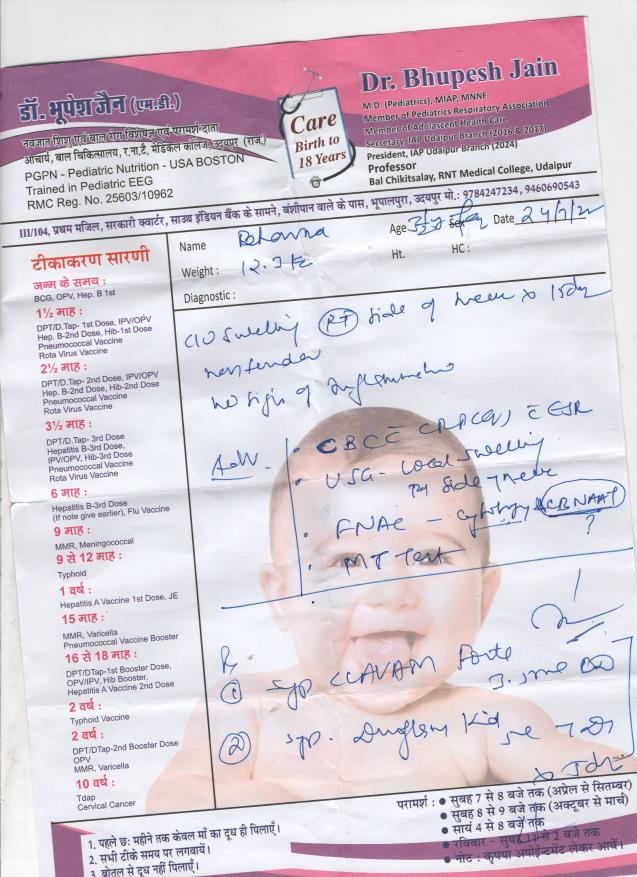 डॉ. भूपेश जैन (एम.डी.)
नवजात शिशु एवं बाल रोग विशेषज्ञ एवं परामर्श-दाता
आचार्य, बाल चिकित्सालय, र.ना.टै. मेडिकल कॉलेज, उदयपुर (राज.)
PGPN - Pediatric Nutrition - USA BOSTON
Trained in Pediatric EEG
RMC Reg. No. 25603/10962
Care
Birth to
18 Years
Dr. Bhupesh Jain
M.D. (Pediatrics), MIAP, MNNF
Member of Pediatrics Respiratory Association
Member of Adolascent Health Care
Secretary, IAP Udaipur Branch (2016 & 2017)
President, IAP Udaipur Branch (2024)
Professor
Bal Chikitsalay, RNT Medical College, Udaipur
III/104, प्रथम मंजिल, सरकारी क्वार्टर, साउथ इंडियन बैंक के सामने, बंशीपान वाले के पास, भूपालपुरा, उदयपुर मो.: 9784247234, 9460690543
टीकाकरण सारणी
जन्म के समय :
BCG, OPV, Hep. B 1st
1½ माह :
DPT/D.Tap- 1st Dose, IPV/OPV
Hep. B-2nd Dose, Hib-1st Dose
Pneumococcal Vaccine
Rota Virus Vaccine
2½ माह :
DPT/D.Tap- 2nd Dose, IPV/OPV
Hep. B-2nd Dose, Hib-2nd Dose
Pneumococcal Vaccine
Rota Virus Vaccine
3½ माह :
DPT/D.Tap- 3rd Dose
Hepatitis B-3rd Dose,
IPV/OPV, Hib-3rd Dose
Pneumococcal Vaccine
Rota Virus Vaccine
6 माह :
Hepatitis B-3rd Dose
(If note give earlier), Flu Vaccine
9 माह :
MMR, Meningococcal
9 से 12 माह :
Typhoid
1 वर्ष :
Hepatitis A Vaccine 1st Dose, JE
15 माह :
MMR, Varicella
Pneumococcal Vaccine Booster
16 से 18 माह :
DPT/DTap-1st Booster Dose,
OPV/IPV, Hib Booster,
Hepatitis A Vaccine 2nd Dose
2 वर्ष :
Typhoid Vaccine
2 वर्ष :
DPT/DTap-2nd Booster Dose
OPV
MMR, Varicella
10 वर्ष :
Tdap
Cervical Cancer
Name Age Sex Date
Weight : 12.3 kg Ht. HC :
Diagnostic :
C/O Swelling RT side of neck x 15dy
non tender
no sign of inflammation
Adv -
CBC CRP ESR
USG - Local swelling
side neck
FNAC - cytology & CBNAAT
?
MT Test
Rx
① Syp CLAVAM Forte
BD
② Syp. Kid
परामर्श : ● सुबह 7 से 8 बजे तक (अप्रैल से सितम्बर)
● सुबह 8 से 9 बजे तक (अक्टूबर से मार्च)
● सायं 4 से 8 बजे तक
● रविवार - सुबह 11 से 2 बजे तक
● नोट : कृपया अपोईन्टमेंट लेकर आवें।
1. पहले छ: महीने तक केवल माँ का दूध ही पिलाएँ।
2. सभी टीके समय पर लगवायें।
3. बोतल से दूध नहीं पिलाएँ।